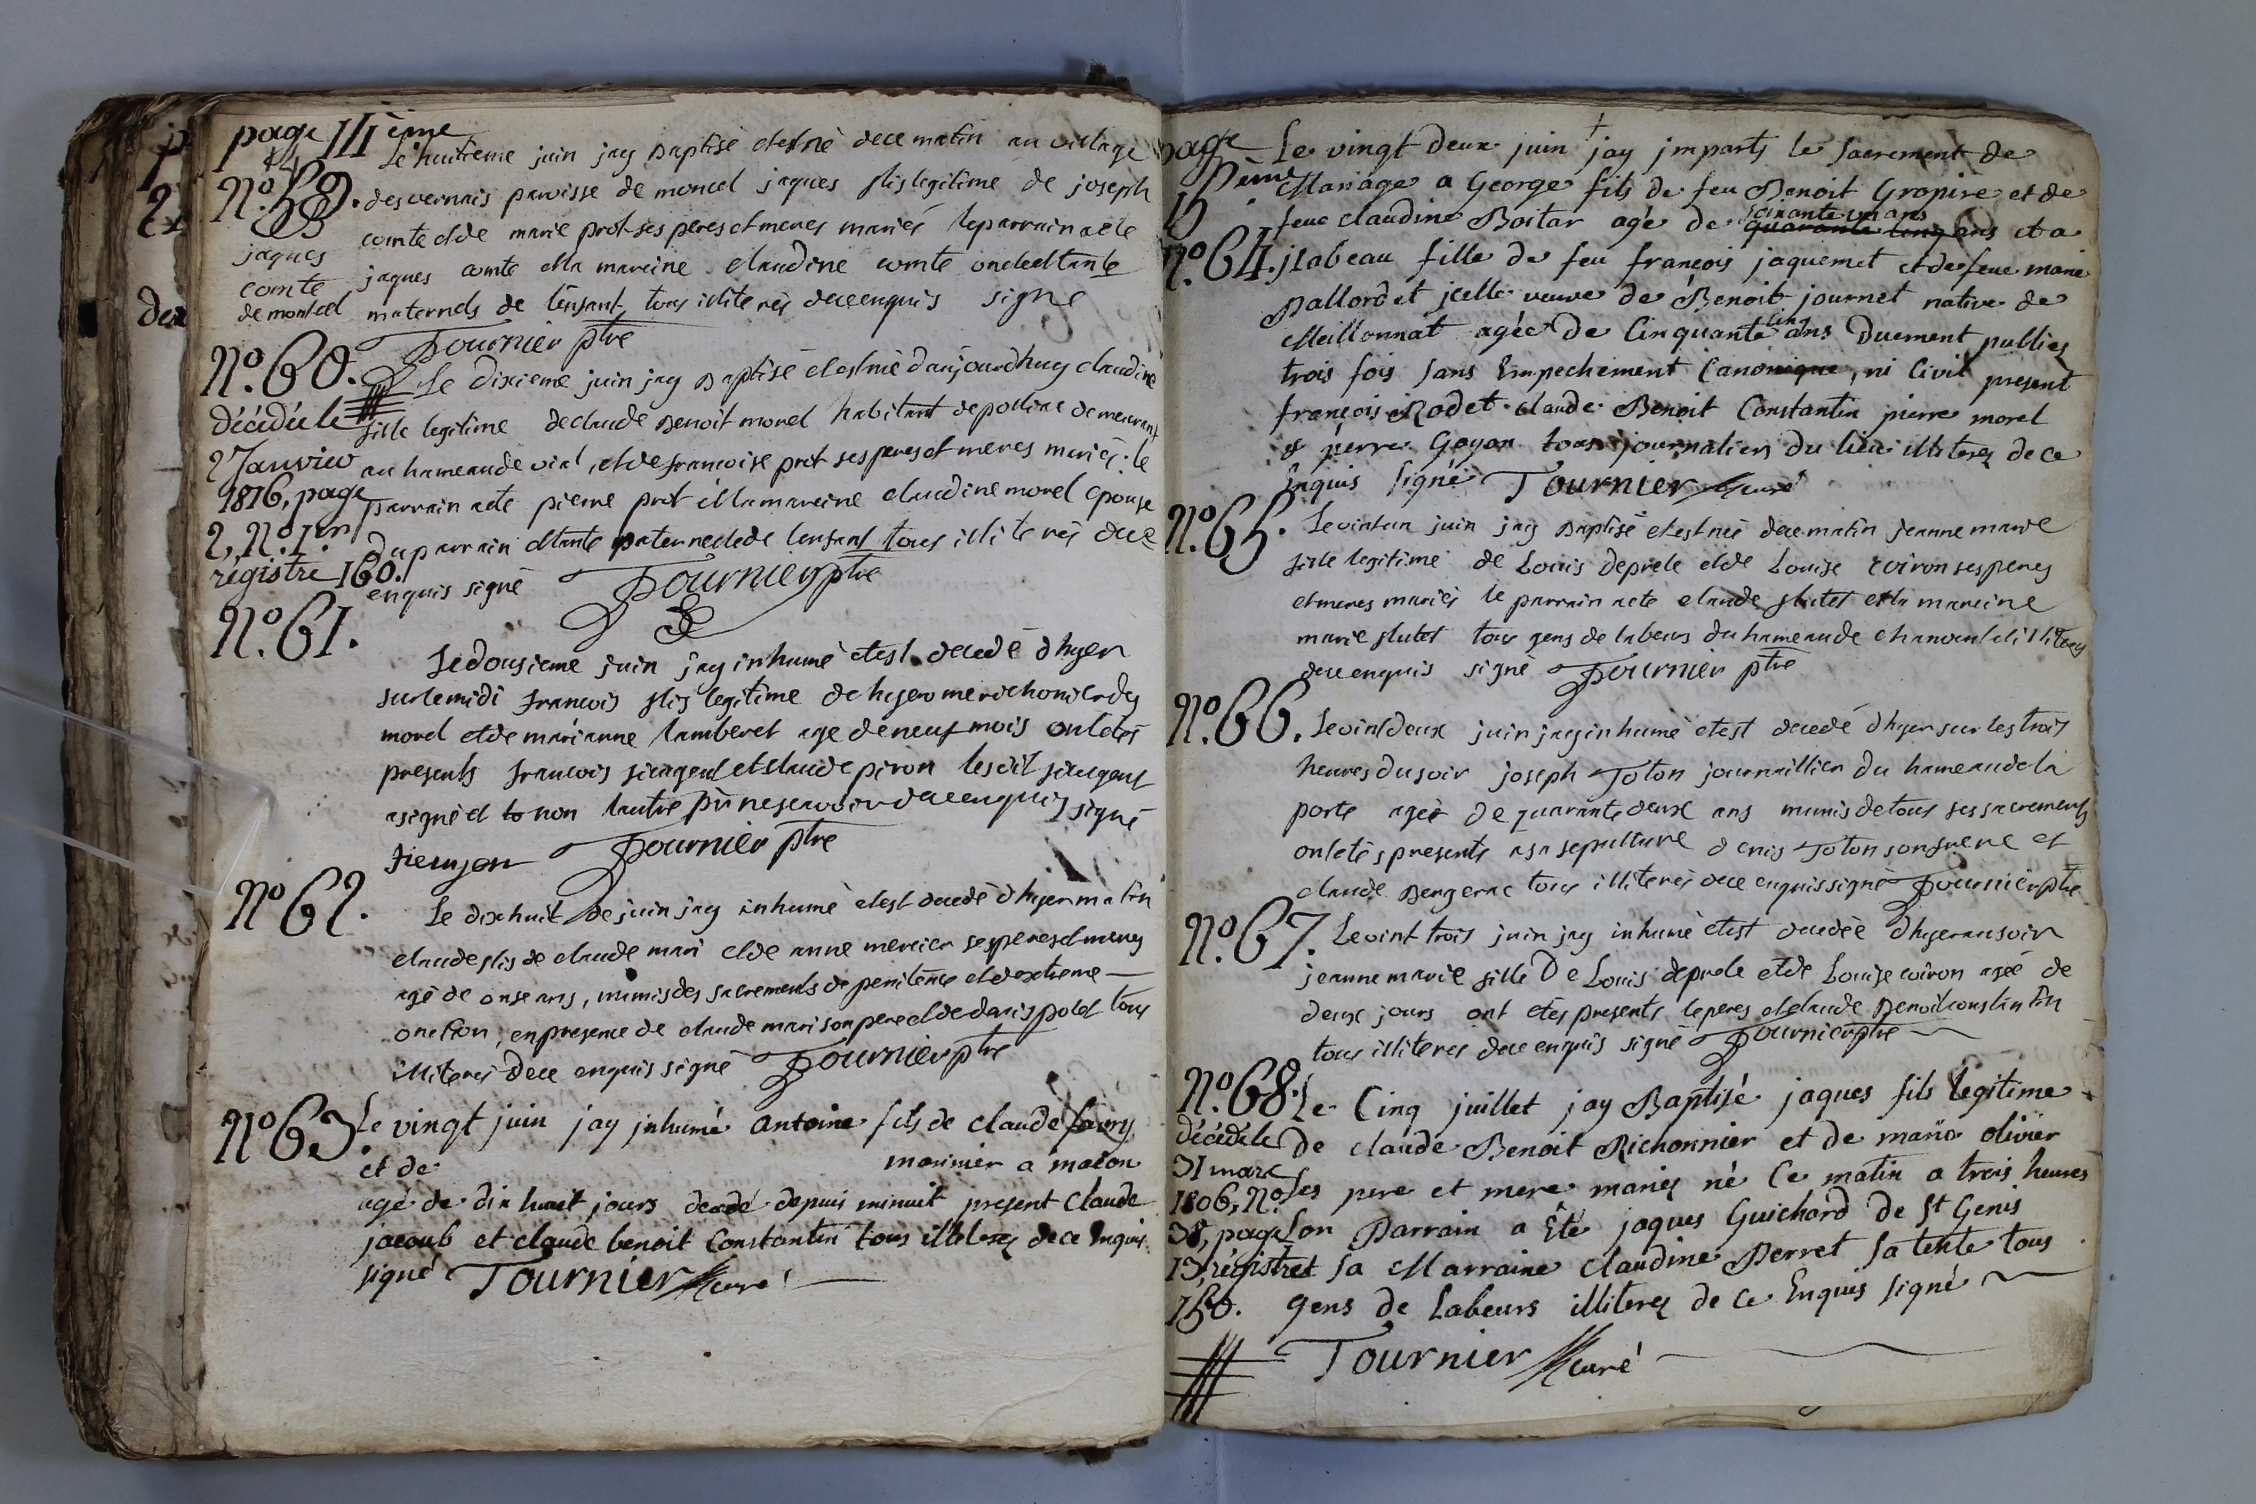 page 14 ème
14
N.º 59.
jaques
comte
de moncel
Le huitieme juin jay Baptisé et est né de ce matin au vilage
des vernais paroisse de moncel jaques fils legitime de joseph
comte et de marie prot ses peres et meres mariés le parrain a ete
jaques comte et la mareine claudine comte oncle et tante
maternels de l'enfant, tous illiterés de ce enquis signé
Tournier ptre
N.º 60.
décédée le
2 Janvier
1816, page
2, N.º 1.er
régistre 160.
Le dixieme juin jay Baptisé et est née d'aujourdhuy claudine
fille legitime de claude Benoit morel habitant de demeurant
au hameau de vial, et de francoise prot ses peres et meres mariés. le
parrain a ete pierre prot et la mareine claudine morel epouse
du parrain et tante paternelle de lenfant tous illiterés de ce
enquis signé Tournier ptre
N.º 61.
Le dousieme juin jay inhumé et est decedé d'hyer
sur le midi francois fils legitime de hyerome richonier dy
morel et de marianne lamberet age de neuf mois ont etés
presents francois et claude piron lesdit
a signé et non lautre pr ne scavoir de ce enquis signé
Tournier ptre
N.º 62.
Le dixhuit de juin jay inhumé et est decedé d'hyer matin
claude fils de claude mari et de anne mercier ses peres et meres
agé de onse ans, munis des sacrements de penitence et dextreme
onction, en presence de claude mari son pere et de denis polet tous
illiterés de ce enquis signé Tournier ptre
N.º 63.
Le vingt juin jay jnhumé antoine fils de claude favry
et de marinier a macon
agé de dix huit jours decedé depuis minuit present claude
jacoub et claude benoit Constantin tous illiterez de ce Enquis
signé Tournier curé
page
15 ème
N.º 64.
Le vingt deux juin jay jmparti le sacrement de
Mariage a George fils de feu Benoit Gropire et de
feue claudine Boitar agé de quarante cinq ans et a
soixante un ans
jsabeau fille de feu françois jaquemet et de feue marie
Pallordet jcelle veuve de Benoit journet native de
Meillonnat agée de Cinquante cinq ans Duement publiez
trois fois sans Empechement Canonique, ni Civil present
françois Rodet claude Benoit Constantin pierre morel
& pierre Goyon tous journaliers du lieu illiterez de ce
Enquis signé Tournier curé
N.º 65.
Le vint un juin jay Baptisé et est née de ce matin jeanne marie
fille legitime de Louis deprele et de Louise coiron ses peres
et meres mariés le parrain a ete claude flutet et la mareine
marie flutet tous gens de labeurs du hameau de illiterés
de ce enquis signé Tournier ptre
N.º 66.
Le vint deux juin jay inhumé et est decedé d'hyer sur les trois
heures du soir joseph Toton journaillier du hameau de la
porte ageé de quarante deux ans munis de tous ses sacrements
ont etés presents a sa sepulture denis Toton son frere et
claude Bergerac tous illiterés de ce enquis signé Tournier ptre
N.º 67.
Le vint trois juin jay inhumé et est decedée d'hyer au soir
jeanne marie fille De Louis deprele et de Louise coiron agée de
deux jours ont etés presents le peres et claude Benoit constantin
tous illiterés de ce enquis signé Tournier ptre
N.º 68.
décédé le
31 mars
1806, N.º
38, page
13, régistre
160.
Le Cinq juillet jay Baptisé jaques fils legitime
de claude Benoit Richonnier et de marie olivier
ses pere et mere mariez né Ce matin a trois heures
son Parrain a Été jaques Guichard de St Genis
et sa Marraine claudine Perret sa tente tous
gens de Labeurs illiterez de Ce Enquis signé
Tournier curé